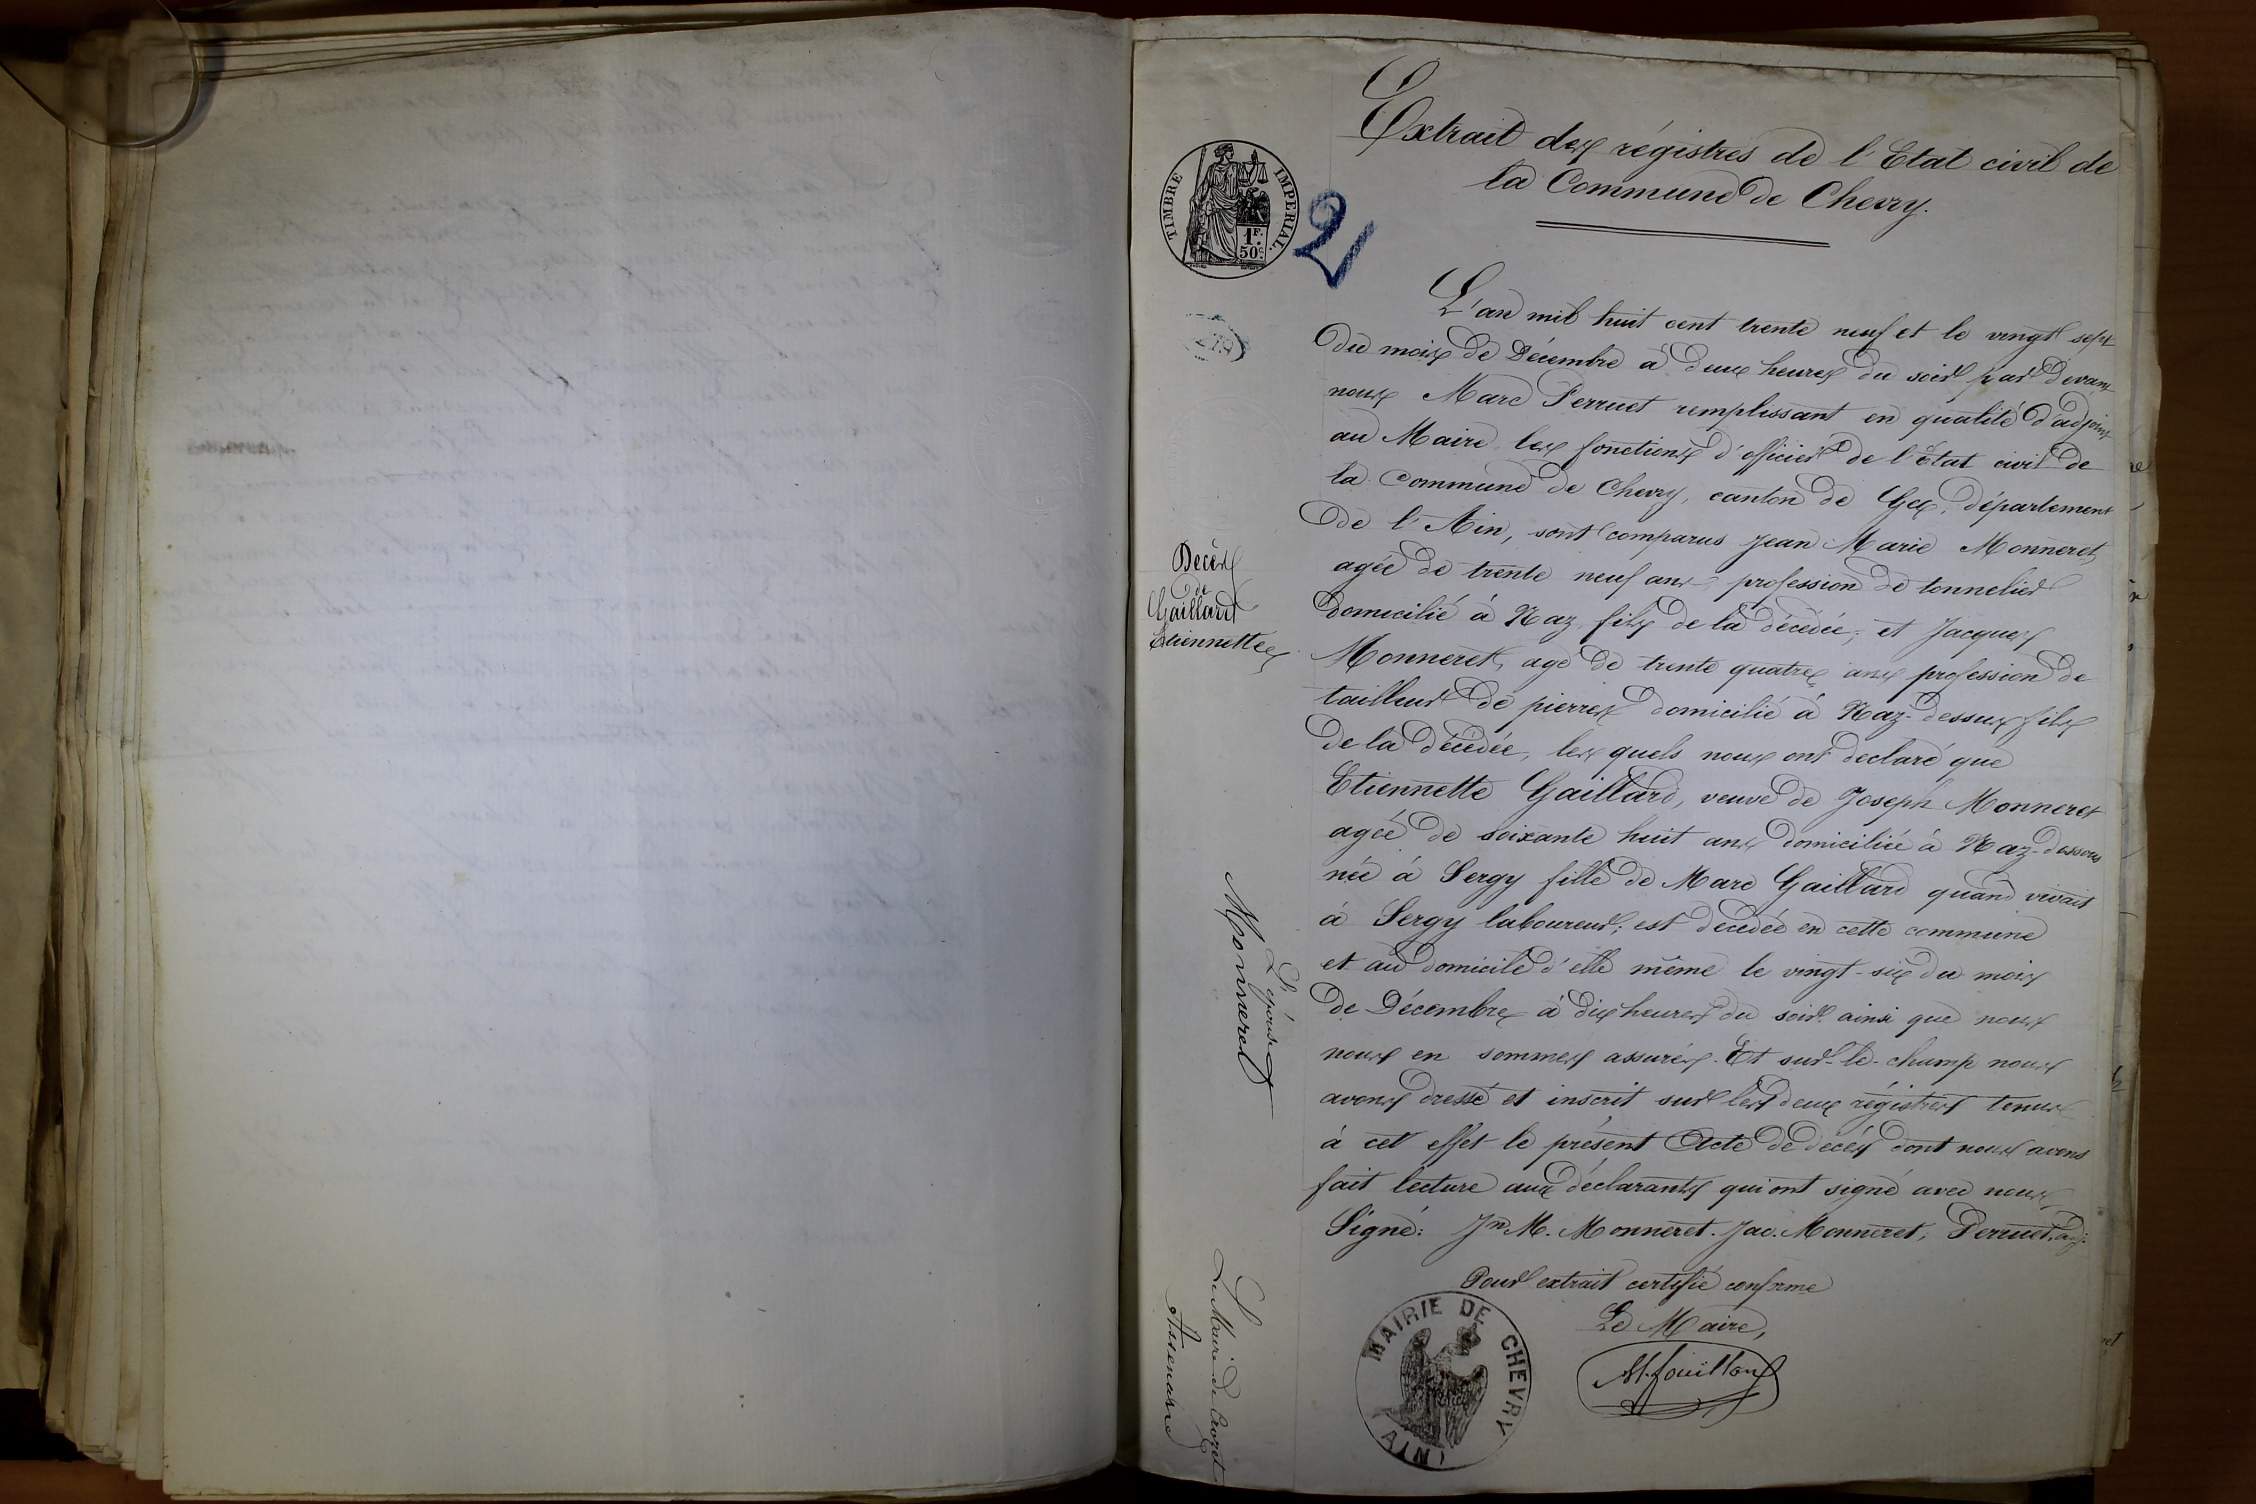 Extrait des régistres de l'Etat civil de
la Commune de Chevry.
TIMBRE IMPERIAL.
1F.
50c.
2
L'an mil huit cent trente neuf et le vingt sept
du mois de Décembre à deux heures du soir par devant
nous Marc Perruet remplissant en qualité d'adjoint
au Maire les fonctions d'officier de l'Etat civil de
la Commune de Chevry, canton de Gex, département
de l'Ain, sont comparus Jean Marie Monneret,
agée de trente neuf ans profession de tonnelier
domicilié à Naz fils de la décédée; et Jacques
Monneret, agé de trente quatre ans profession de
tailleur de pierres domicilié à Naz-dessus fils
de la décédée, les quels nous ont declaré que
Etiennette Gaillard, veuve de Joseph Monneret
agée de soixante huit ans domiciliée à Naz-dessous
née à Sergy fille de Marc Gaillard quand vivait
à Sergy laboureur; est décédée en cette commune
et au domicile d'elle même le vingt-six du mois
de Décembre à dix heures du soir ainsi que nous
nous en sommes assurés. Et sur-le-champ nous
avons dressé et inscrit sur les deux régistres tenus
à cet effet le présent Acte de decès dont nous avons
fait lecture aux déclarants qui ont signé avec nous
Signé: Jn M. Monneret. Jac. Monneret, Perruet, adj.
Pour extrait certifié conforme
Le Maire,
M. fouillou
MAIRIE DE CHEVRY
(AIN)
Decès
de
Gaillard
Etiennette
L'épouse
Monneret
Le Maire de Crozet